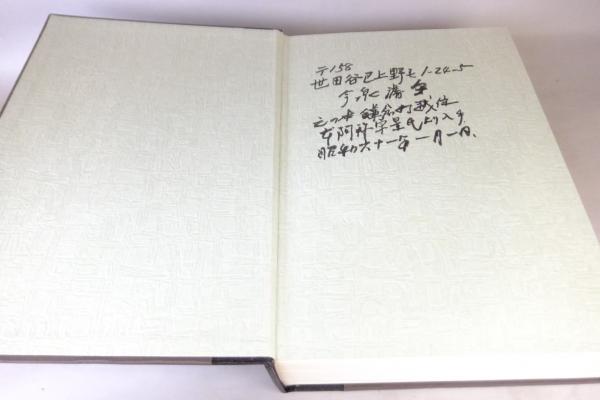 〒158
世田谷区上野毛1-24-5
今泉 濟
この本 鎌倉 在住
本阿弥 氏より入手
昭和六十一年一月一日